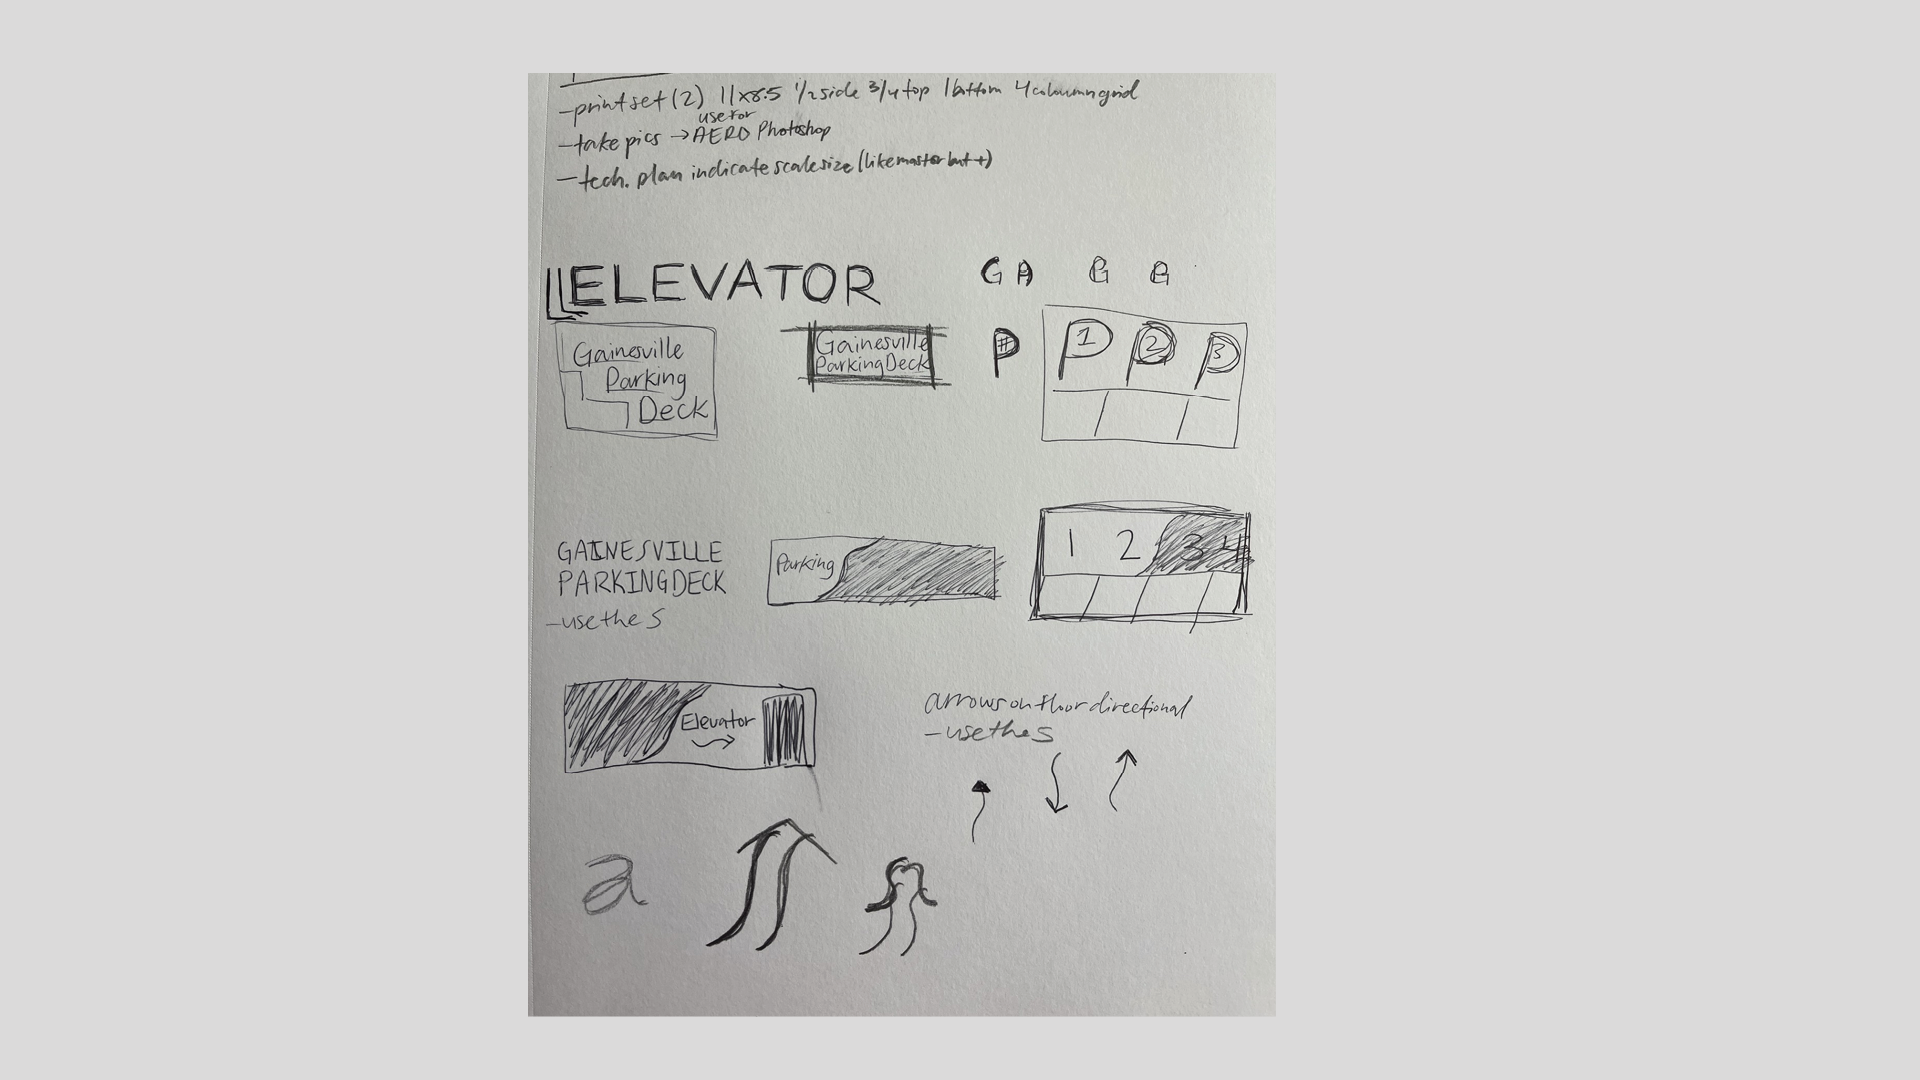 -print set (2) 11x8.5 1/2 side 3/4 top 1 bottom 4 coloumn grid
use for
-take pics → AERO Photoshop
-tech. plan indicate scale size (like master but +)
ELEVATOR
G A G A
Gainesville
Parking
Deck
Gainesville
Parking Deck
P #
1 2 3
GAINESVILLE
PARKING DECK
-use the S
Parking
1 2 3 4
Elevator
arrows on floor directional
-use the S
a